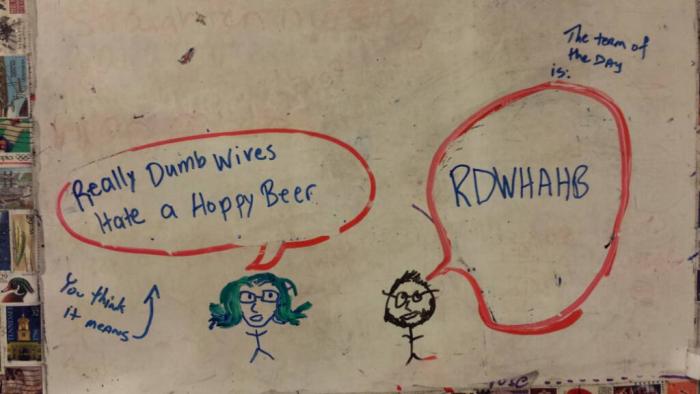 The term of
the DAY
is:
RDWHAHB
Really Dumb Wives
Hate a Hoppy Beer
You think
it means